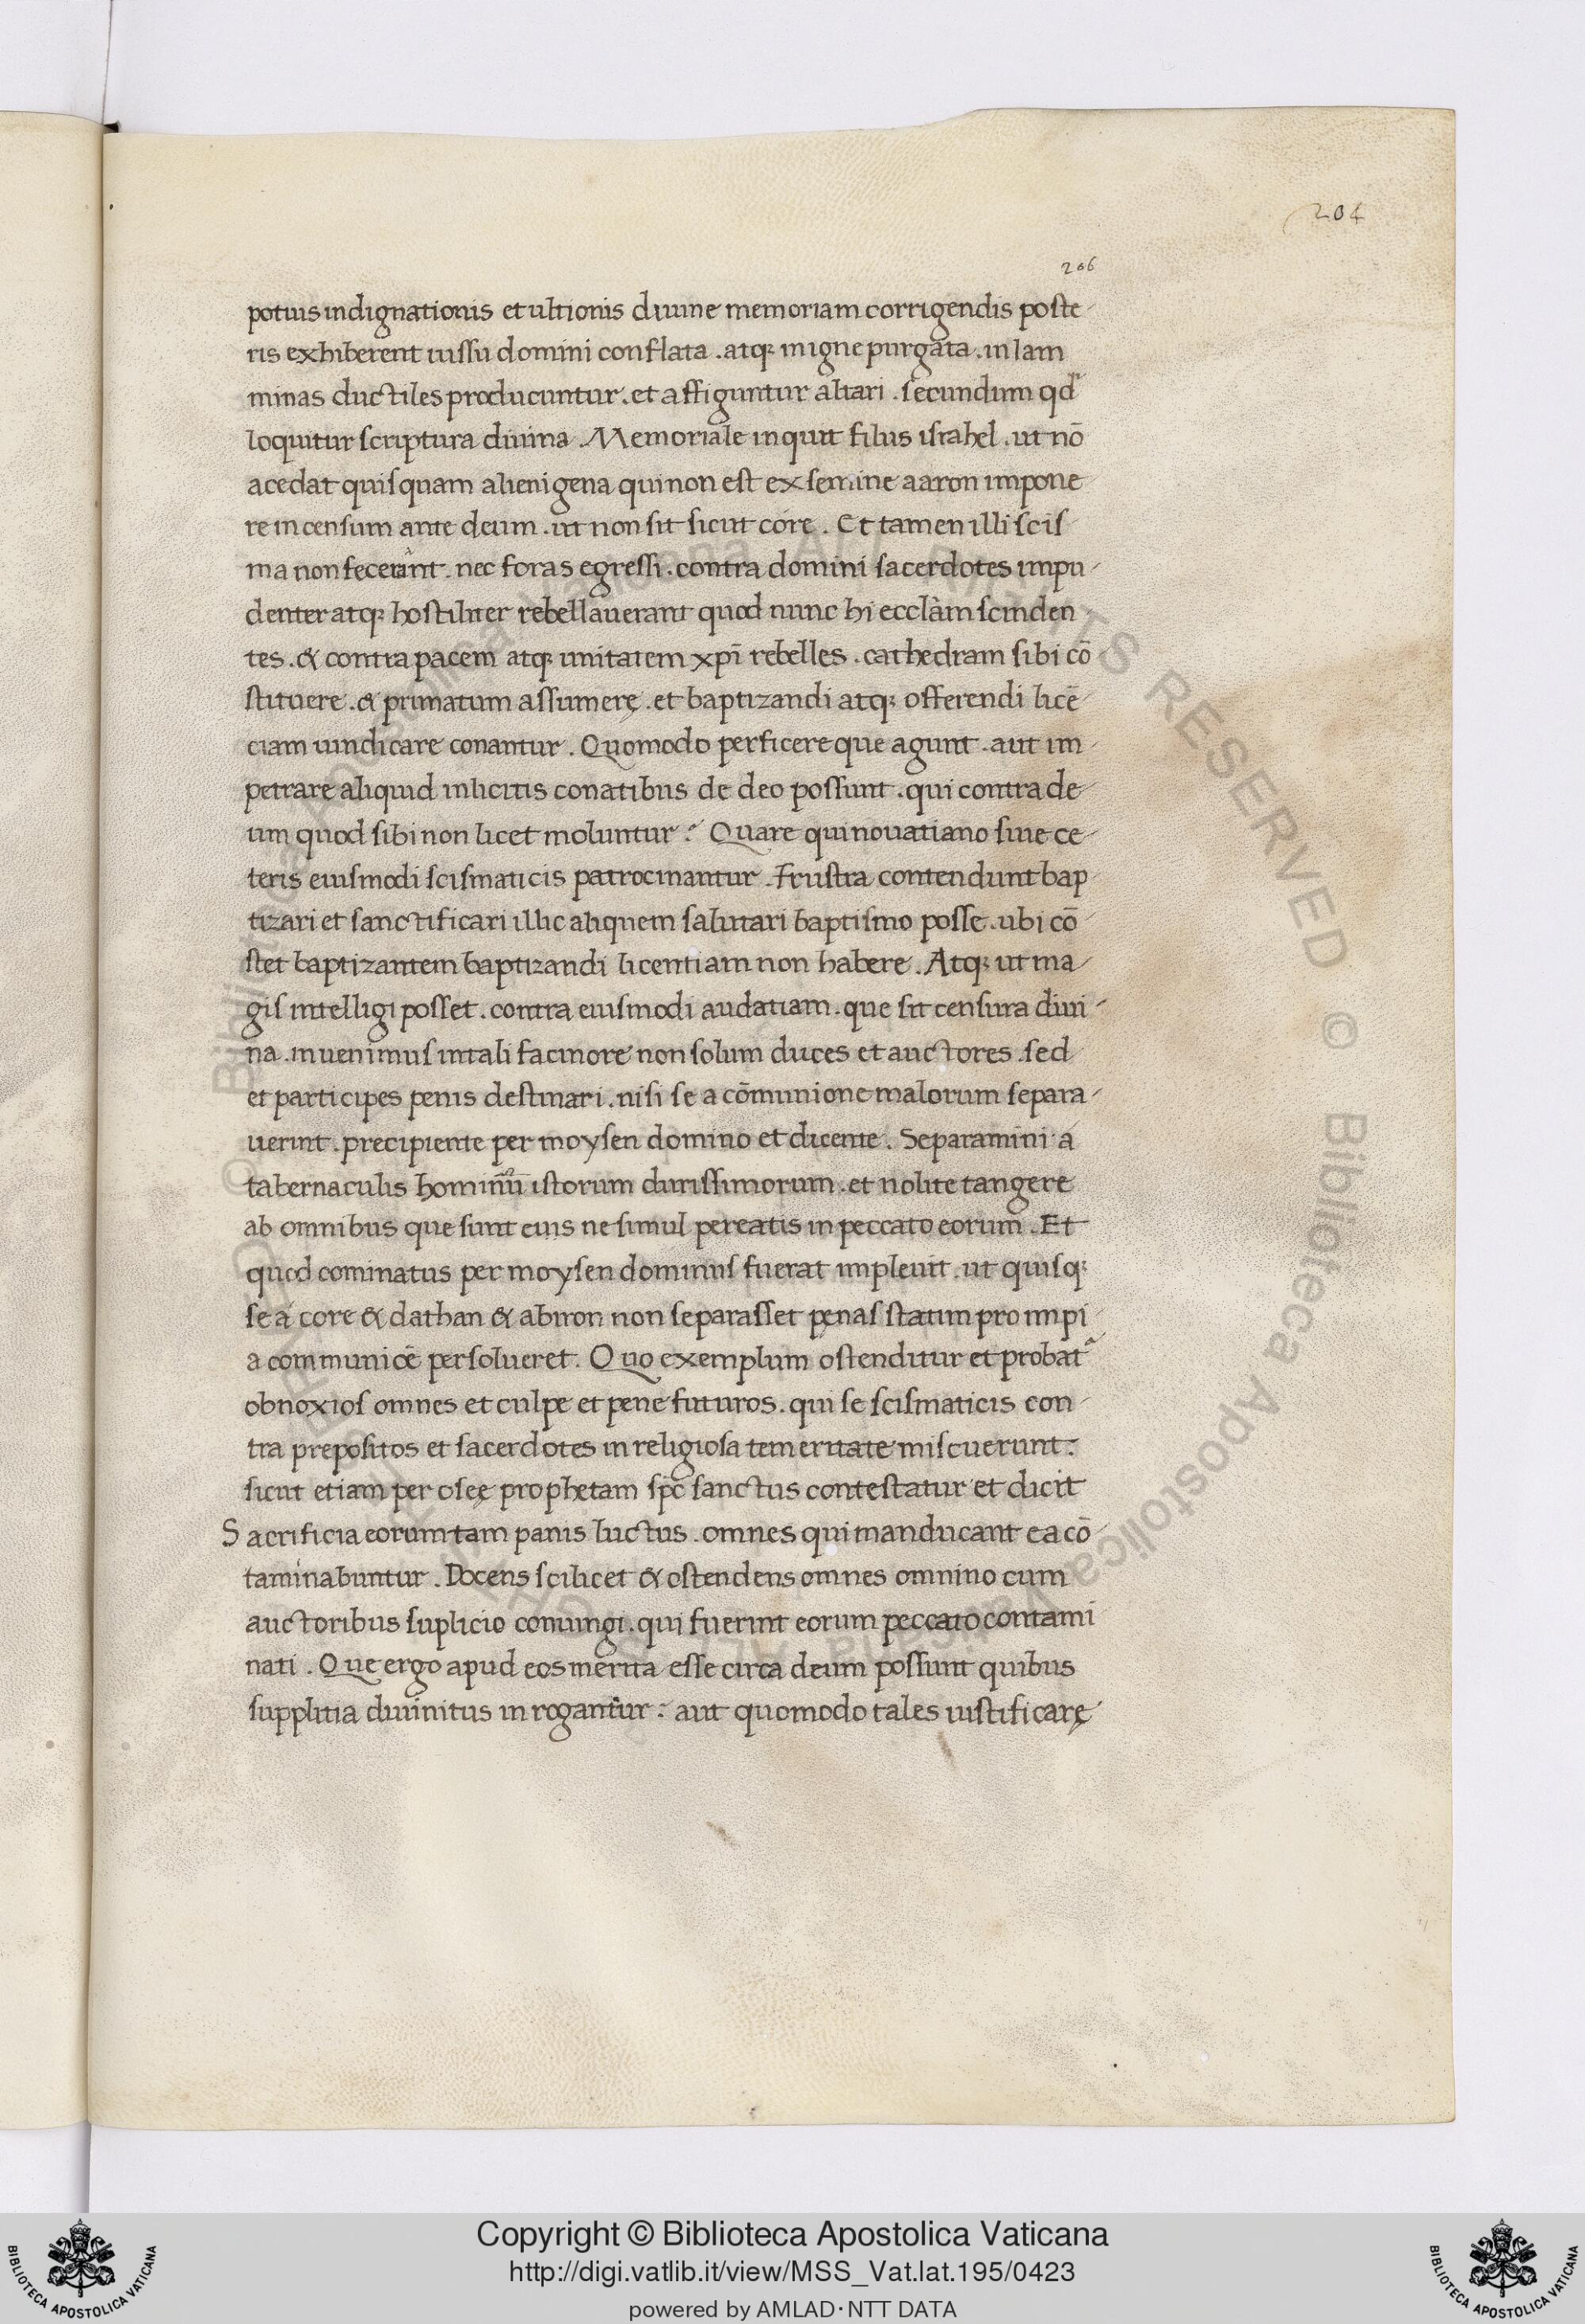 204
206
potius indignationis et ultionis diuine memoriam corrigendis poste
ris exhiberent iussu domini conflata . atq; in igne purgata . in lam
minas ductiles producuntur . et affiguntur altari . secundum qđ
loquitur scriptura diuina . Memoriale inquit filiis israhel . ut nō
acedat quisquam alienigena qui non est ex semine aaron impone
re incensum ante deum . ut non sit sicut core . Et tamen illi scis
ma non fecerant . nec foras egressi . contra domini sacerdotes impu
denter atq; hostiliter rebellauerant quod nunc hi ecclām scinden
tes . & contra pacem atq; unitatem xp̄i rebelles . cathedram sibi cō
stituere . & primatum assumerę . et baptizandi atq; offerendi licē
ciam uindicare conantur . Quomodo perficere que agunt . aut im
petrare aliquid inlicitis conatibus de deo possunt . qui contra de
um quod sibi non licet moluntur ? Quare qui nouatiano siue ce
teris eiusmodi scismaticis patrocinantur . Frustra contendunt bap
tizari et sanctificari illic aliquem salutari baptismo posse . ubi cō
stet baptizantem baptizandi licentiam non habere . Atq; ut ma
gis intelligi posset . contra eiusmodi audatiam . que sit censura diui
na . inuenimus in tali facinore non solum duces et auctores . sed
et participes penis destinari . nisi se a cōmunione malorum separa
uerint . precipiente per moysen domino et dicente . Separamini a
tabernaculis hominū istorum durissimorum . et nolite tangere
ab omnibus que sunt eius ne simul pereatis in peccato eorum . Et
quod cominatus per moysen dominus fuerat impleuit . ut quisq;
se a core & dathan & abiron non separasset penas statim pro impi
a communicē persolueret . Quo exemplum ostenditur et probat
obnoxios omnes et culpe et pene futuros . qui se scismaticis con
tra prepositos et sacerdotes inreligiosa temeritate miscuerunt :
sicut etiam per oseę prophetam sp̄c sanctus contestatur et dicit
Sacrificia eorum tam panis luctus . omnes qui manducant ea cō
taminabuntur . Docens scilicet & ostendens omnes omnino cum
auctoribus suplicio coniungi . qui fuerint eorum peccato contami
nati . Que ergo apud eos merita esse circa deum possunt quibus
supplitia diuinitus inrogantur : aut quomodo tales iustificarę
© Biblioteca Apostolica Vaticana ALL RIGHTS RESERVED
© Biblioteca Apostolica Vaticana ALL RIGHTS RESERVED
Copyright © Biblioteca Apostolica Vaticana
http://digi.vatlib.it/view/MSS_Vat.lat.195/0423
powered by AMLAD · NTT DATA
BIBLIOTECA APOSTOLICA VATICANA
BIBLIOTECA APOSTOLICA VATICANA